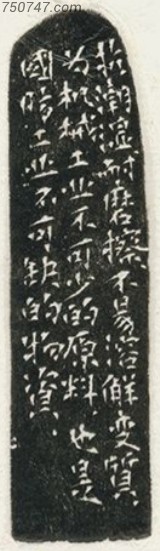 750747.com
抗潮濕耐磨擦不易溶解变質.
为机械工业不可少的原料.也是
國防工业不可缺的物資.